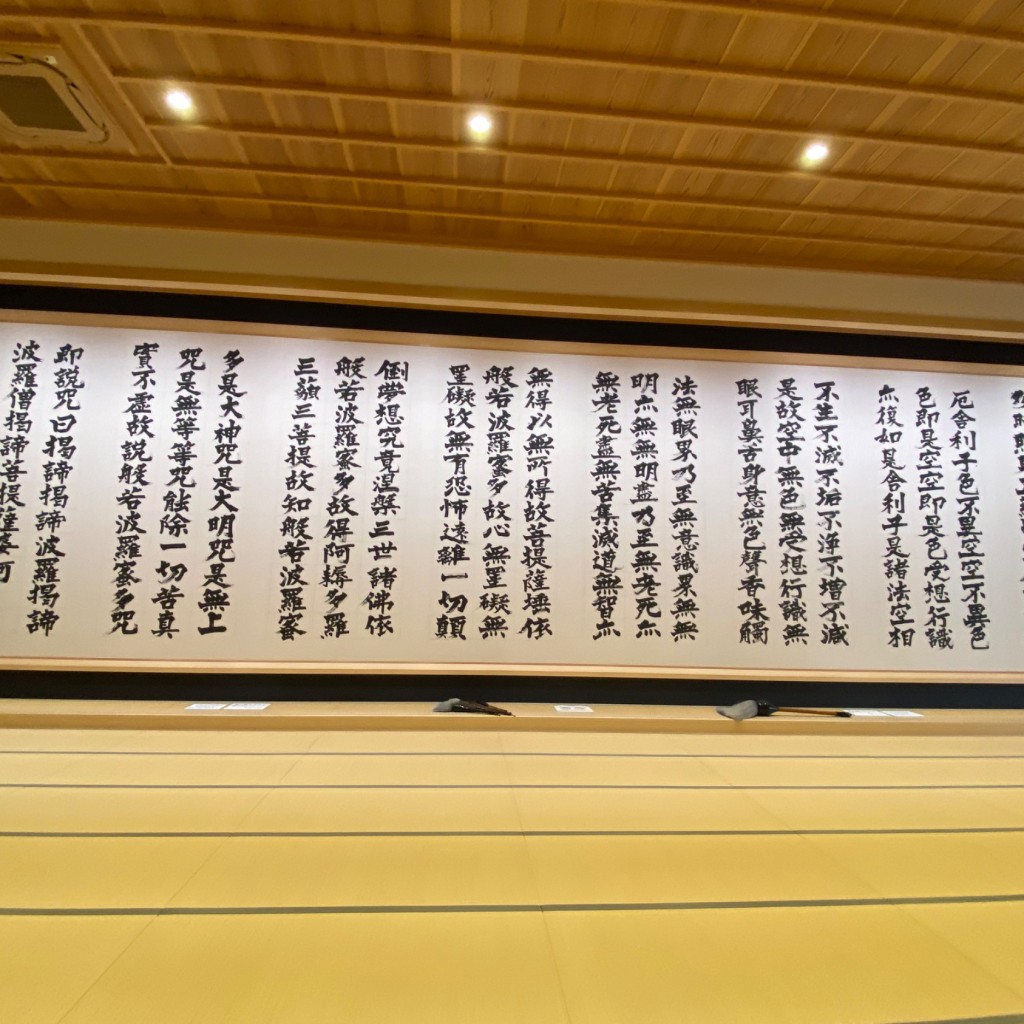 厄舎利子色不異空空不異色
色即是空空即是色受想行識
亦復如是舎利子是諸法空相
不生不滅不垢不浄不増不減
是故空中無色無受想行識無
眼耳鼻舌身意無色聲香味觸
法無眼界乃至無意識界無無
明亦無無明盡乃至無老死亦
無老死盡無苦集滅道無智亦
無得以無所得故菩提薩埵依
般若波羅蜜多故心無罣礙無
罣礙故無有恐怖遠離一切顛
倒夢想究竟涅槃三世諸佛依
般若波羅蜜多故得阿耨多羅
三藐三菩提故知般若波羅蜜
多是大神咒是大明咒是無上
咒是無等等咒能除一切苦真
實不虚故説般若波羅蜜多咒
即説咒曰掲諦掲諦波羅掲諦
波羅僧掲諦菩提薩婆訶